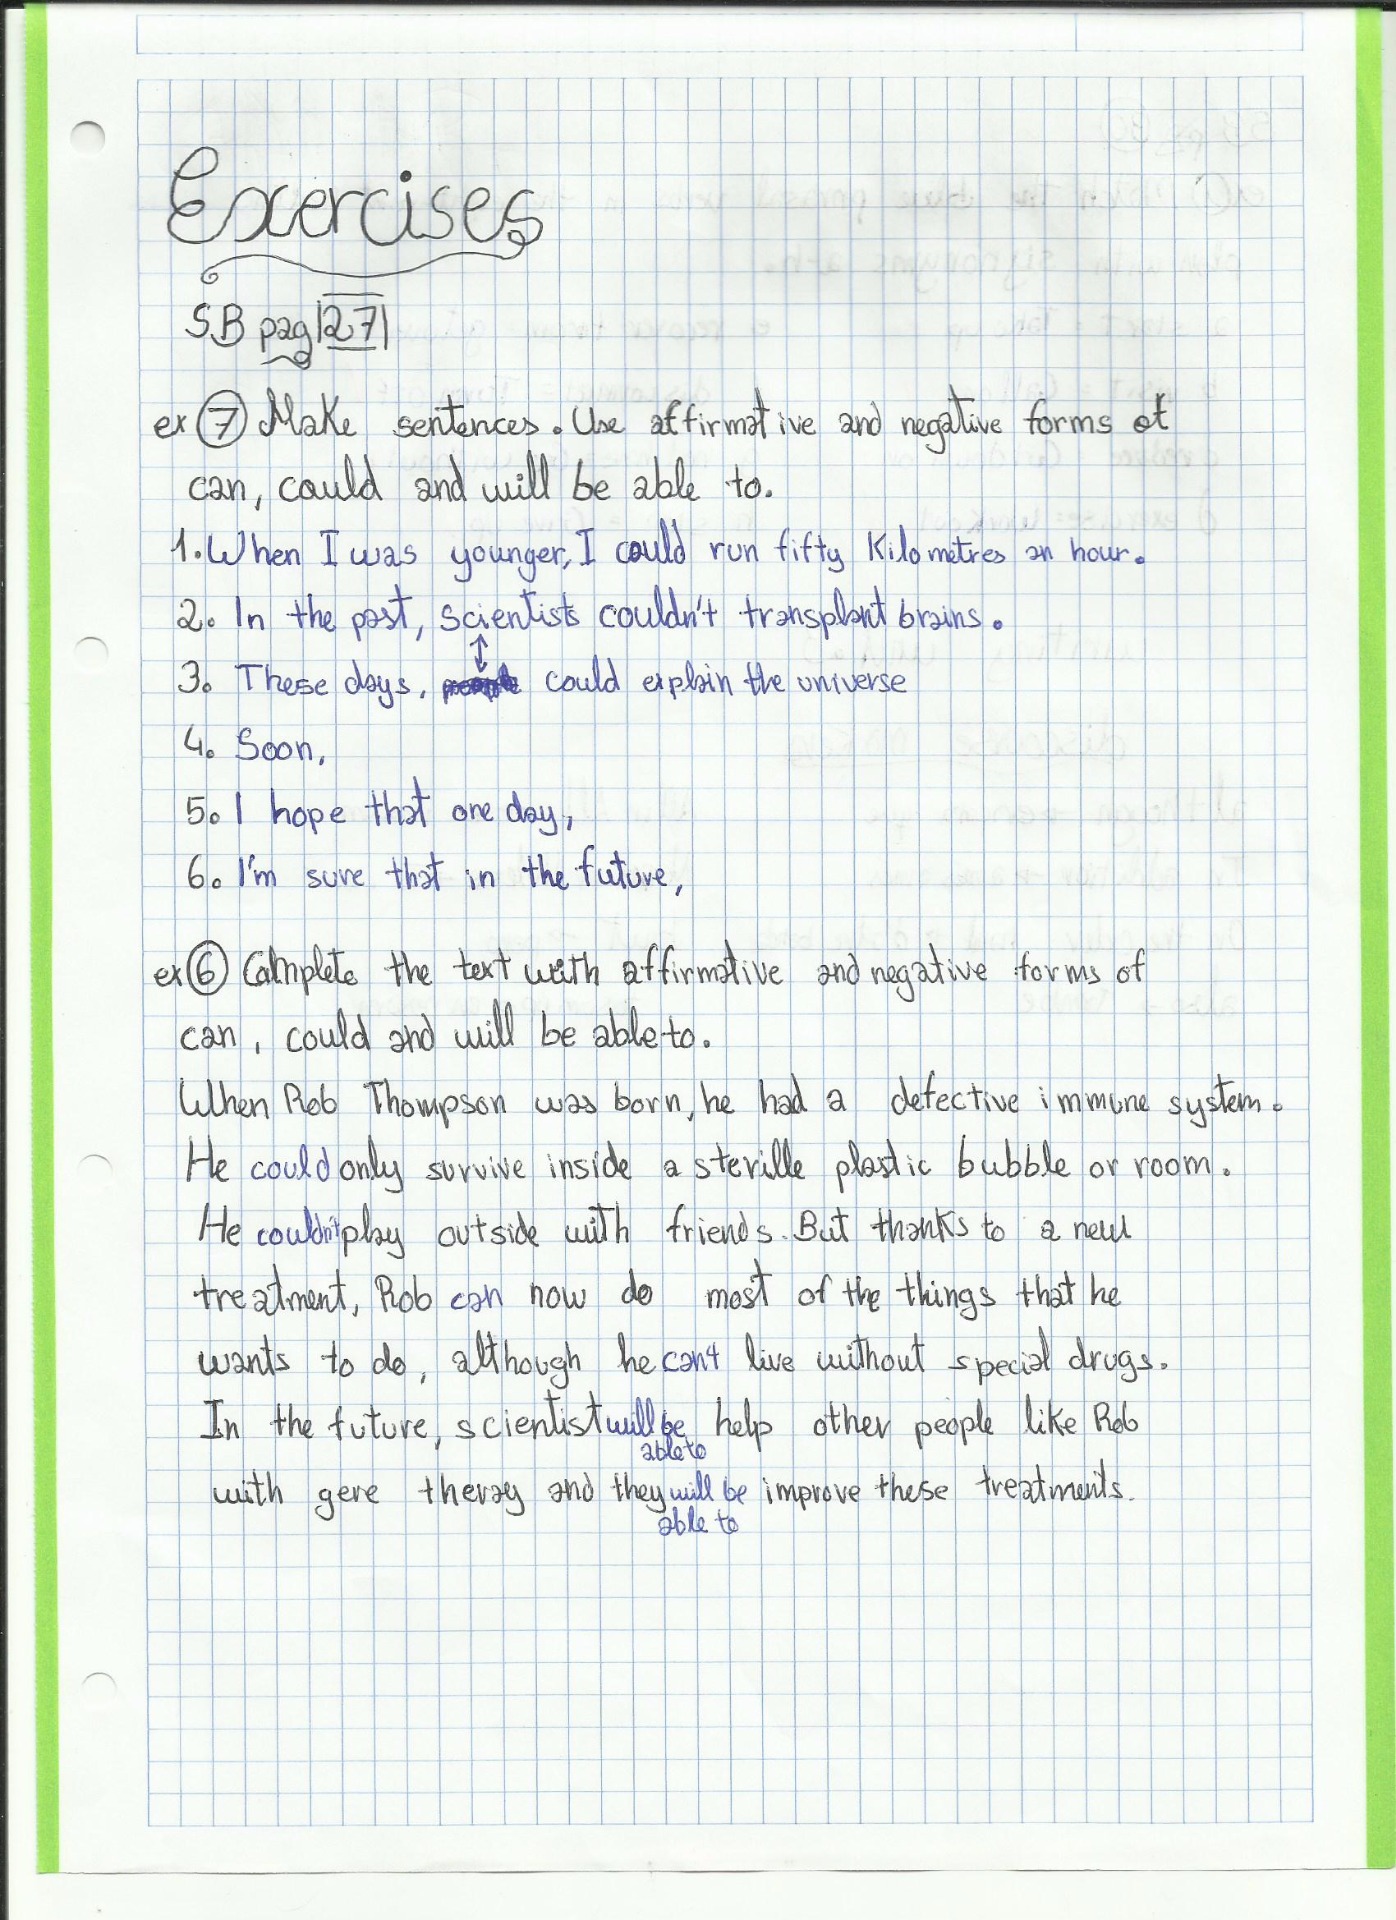 Exercises
S.B pag 27
ex 7 Make sentences. Use affirmative and negative forms of
can, could and will be able to.
1. When I was younger, I could run fifty Kilometres an hour.
2. In the past, scientists couldn't transplant brains.
3. These days, could explain the universe
4. Soon,
5. I hope that one day,
6. I'm sure that in the future,
ex 6 Complete the text with affirmative and negative forms of
can, could and will be able to.
When Rob Thompson was born, he had a defective immune system.
He could only survive inside a sterille plastic bubble or room.
He couldn't play outside with friends. But thanks to a new
treatment, Rob can now do most of the things that he
wants to do, although he can't live without special drugs.
In the future, scientist will be help other people like Rob
able to
with gene theray and they will be improve these treatments.
able to